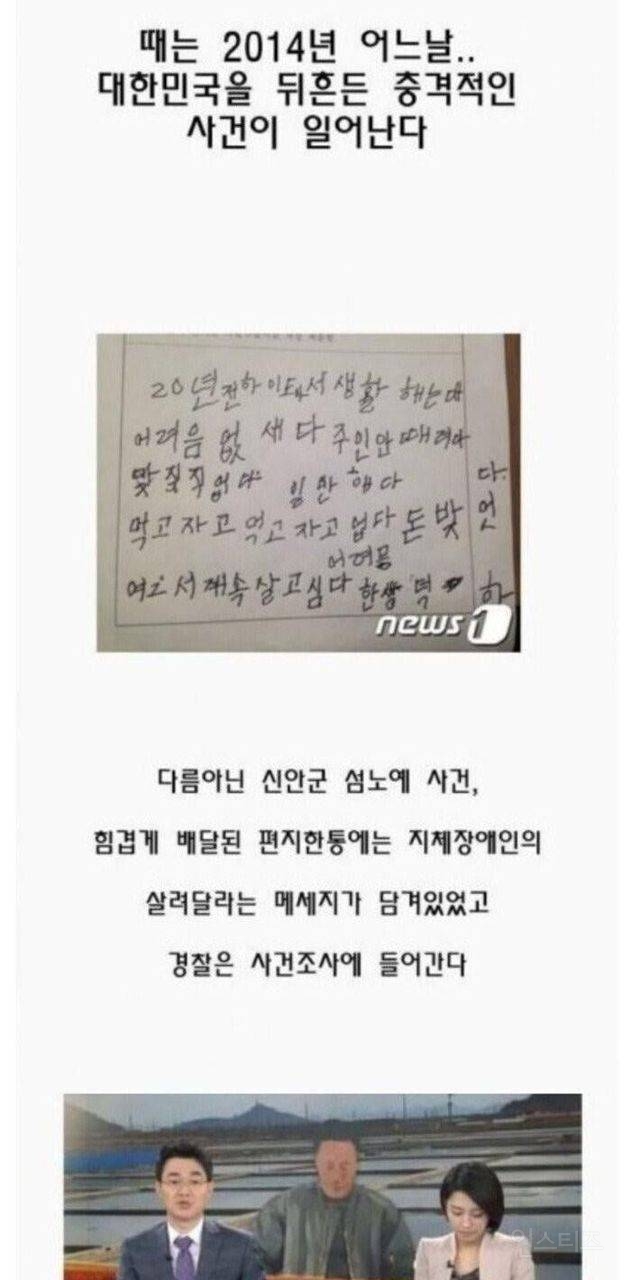 때는 2014년 어느날..
대한민국을 뒤흔든 충격적인
사건이 일어난다
20년전하이도서생활 해는대
어려음 없 새다 주인안때려다
맞질직없다 일만해다 다.
먹고자고 먹고자고업다돈밪 언
어여믕
여그서재속살고심다한상 먹 하
news1
다름아닌 신안군 섬노예 사건,
힘겹게 배달된 편지한통에는 지체장애인의
살려달라는 메세지가 담겨있었고
경찰은 사건조사에 들어간다
인스티즈